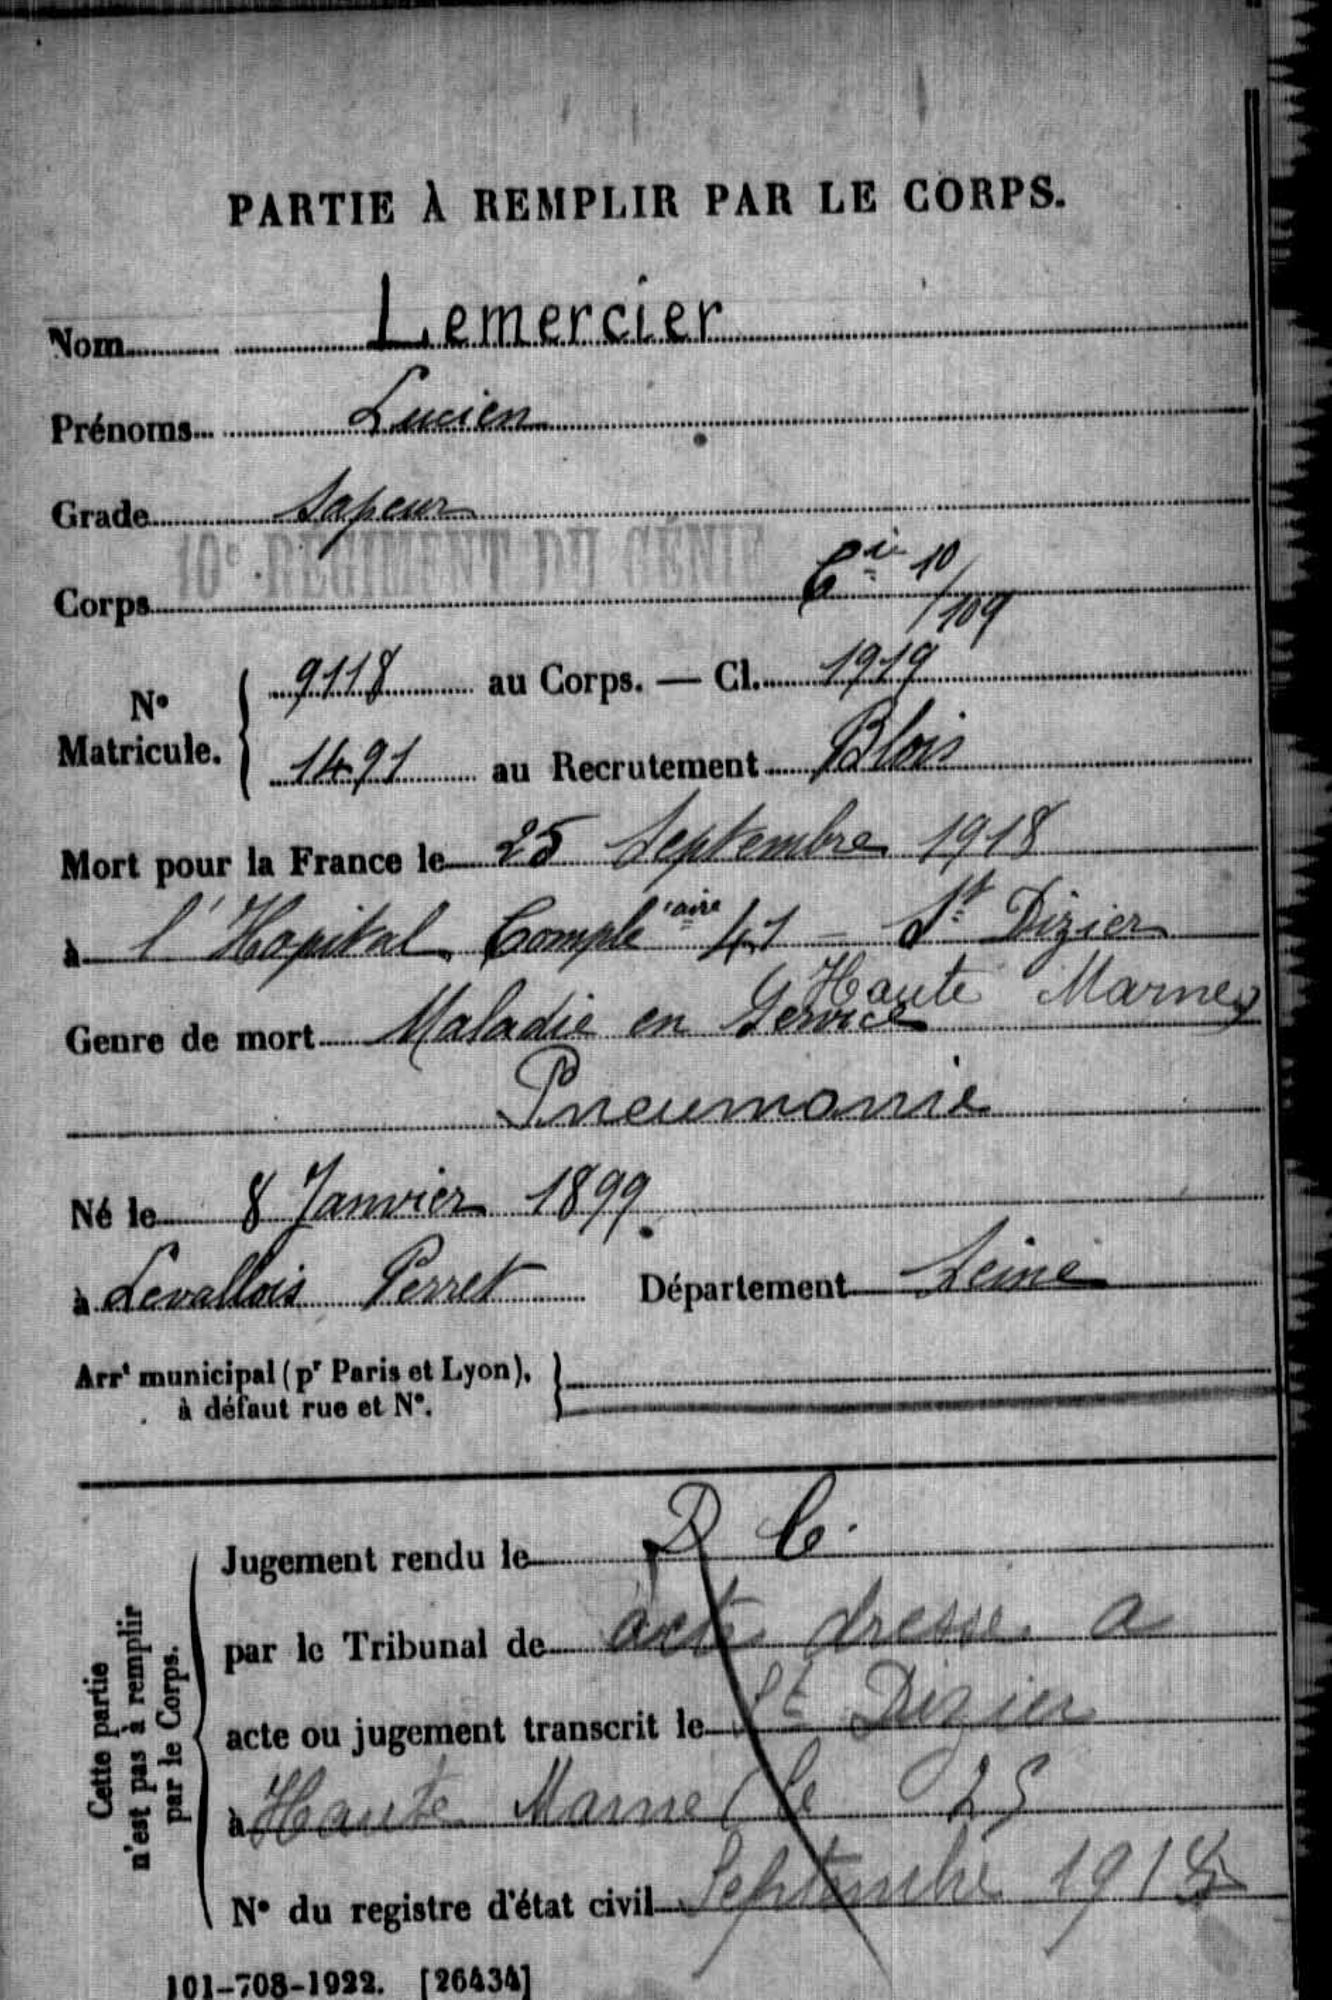 PARTIE À REMPLIR PAR LE CORPS.
Nom Lemercier
Prénoms Lucien
Grade Sapeur
10e RÉGIMENT DU GÉNIE
Corps Cie 10/109
No Matricule. 9118 au Corps. — Cl. 1919
1491 au Recrutement Blois
Mort pour la France le 25 Septembre 1918
à l'Hopital Complé'aire 41 - St Dizier
Haute Marne
Genre de mort Maladie en Service
Pneumonie
Né le 8 Janvier 1899.
à Levallois Perret Département Seine
Arrt municipal (pr Paris et Lyon),
à défaut rue et No.
Cette partie
n'est pas à remplir
par le Corps.
Jugement rendu le D C.
par le Tribunal de acte dresse a
acte ou jugement transcrit le St Dizier
à Haute Marne le 25
No du registre d'état civil Septembre 1918
101-708-1922. [26434]